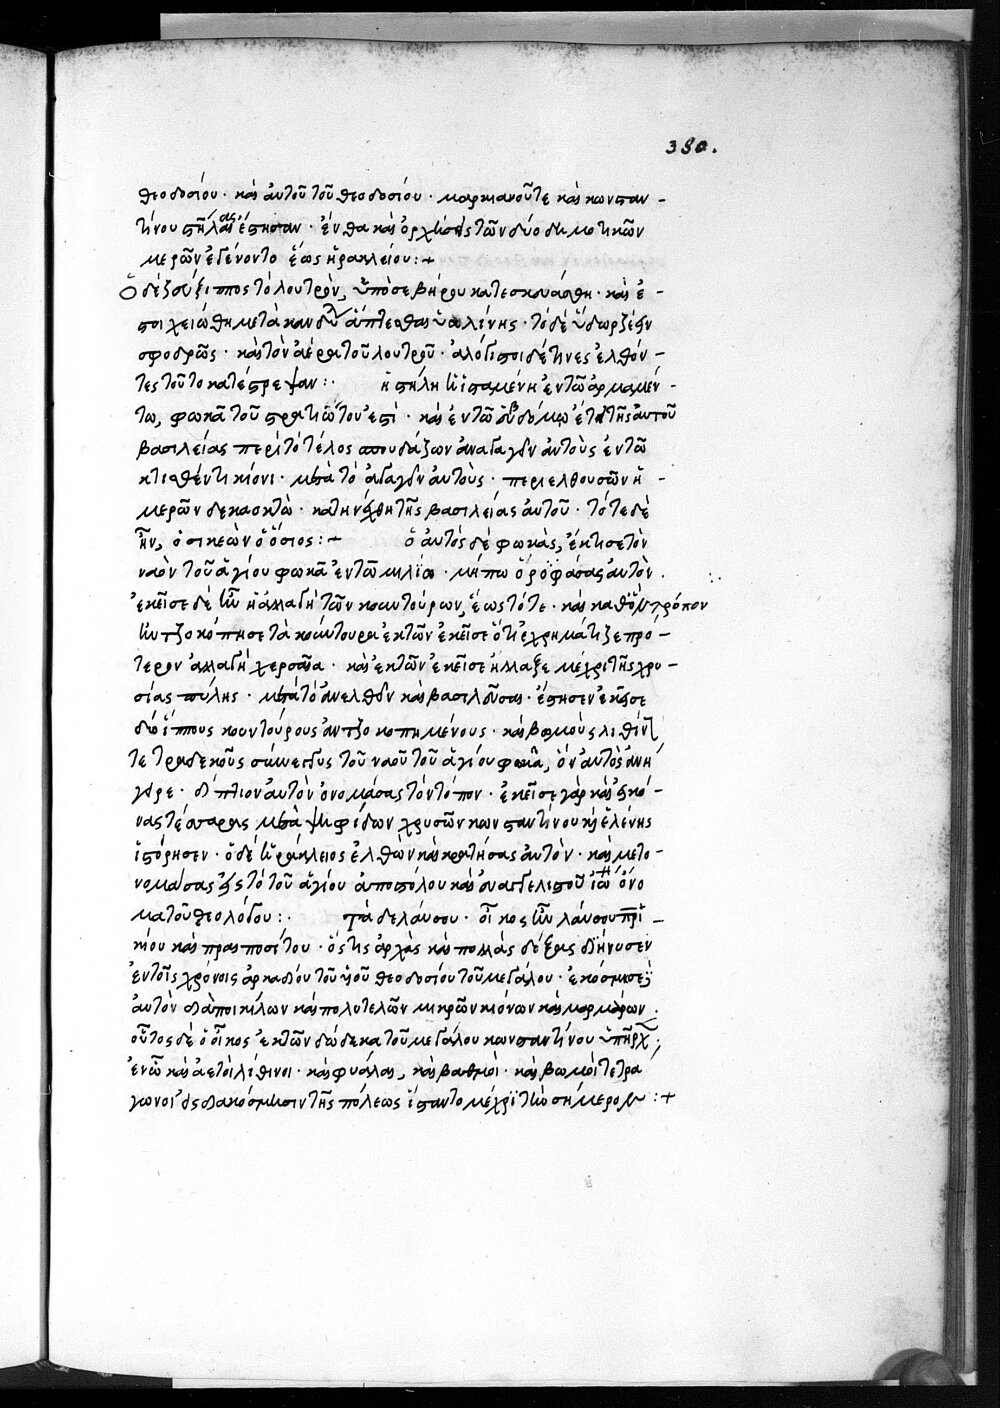 380.
θεοδοσίου · καὶ αὐτοῦ τοῦ θεοδοσίου · μαρκιανοῦ τε καὶ κωνσταν-
τίνου στήλας ἔστησαν · ἔνθα καὶ ὀρχήσεις τῶν δύο δημοτικῶν
μερῶν ἐγένοντο ἕως ἡρακλείου :+
Ὁ δὲ ζεύξιππος τὸ λουτρὸν, ὑπὸ σεβήρου κατεσκευάσθη · καὶ ἐ-
στοιχειώθη μετὰ κανδήλ ἅπτεσθαι ὑαλίνης · τὸ δὲ ὕδωρ ζέειν
σφοδρῶς · καὶ τὸν ἀέρα τοῦ λουτροῦ · ἀλόγιστοι δέ τινες ἐλθόν-
τες τοῦτο κατέστρεψαν :· ἡ στήλη ἡ ἱσταμένη ἐν τῶ ἀρμαμέν-
τω, φωκᾶ τοῦ στρατιώτου ἐστὶ · καὶ ἐν τῶ ἑβδόμω ἔτει τῆς αὐτοῦ
βασιλείας περὶ τὸ τέλος σπουδάζων ἀναγαγεῖν αὐτοὺς ἐν τῶ
κτισθέντι κίονι · μετὰ τὸ ἀγαγεῖν αὐτοὺς · περιελθουσῶν ἡ-
μερῶν δεκαοκτὼ · κατηνέχθη τῆς βασιλείας αὐτοῦ · τότε δὲ
ἦν, ὁ συκεὼν ὁ ὅσιος :+ ὁ αὐτὸς δὲ φωκὰς, ἔκτισε τὸν
ναὸν τοῦ ἁγίου φωκᾶ ἐν τῶ μιλίω · μήπω ὀροφάσας αὐτὸν .
ἐκεῖσε δὲ ἦν ἡ ἀλλαγὴ τῶν κουντούρων, ἕως τότε · καὶ καθ' ὃν τρόπον
ἠντζοκόπησε τὰ κούντουρα ἐκ τῶν ἐκεῖσε ὅτι ἐχρημάτιζε πρό-
τερον ἀλλαγὴ χερσαῖα · καὶ ἐκ τῶν ἐκεῖσε ἤλλαξε μέχρι τῆς χρυ-
σίας πύλης · μετὰ τὸ ἀνελθεῖν καὶ βασιλεῦσαι · ἔστησεν ἐκεῖσε
δύο ἵππους κουντούρους ἀντζοκοπημένους · καὶ βωμοὺς λιθίν
τετραδικοῦς σύνεγγυς τοῦ ναοῦ τοῦ ἁγίου φωκᾶ, ὃν αὐτὸς ἀνή
γειρε · δίππιον αὐτὸν ὀνομάσας τὸν τόπον · ἐκεῖσε γὰρ καὶ εἰκό-
νας τέσσαρας μετὰ ψηφίδων χρυσῶν κωνσταντίνου κ ἑλένης
ἱστόρησεν · ὁ δὲ ἡράκλειος ἐλθὼν καὶ κρατήσας αὐτὸν · καὶ μετο-
νομάσας εἰς τὸ τοῦ ἁγίου ἀποστόλου καὶ εὐαγγελιστοῦ ἰω ὀνό
ματοῦ θεολόγου :· τὰ δὲ λαύσου · οἶκος ἦν λαύσου πρι-
κίου καὶ πραιποσίτου · ὅστις ἀρχὰς καὶ πολλὰς δόξας διήνυσεν
ἐν τοῖς χρόνοις ἀρκαδίου τοῦ υἱοῦ θεοδοσίου τοῦ μεγάλου · ἐκόσμισε
αὐτὸν διὰ ποικίλων καὶ πολυτελῶν μικρῶν κιόνων καὶ μαρμάρων .
οὗτος δὲ ὁ οἶκος ἐκ τῶν δώδεκα τοῦ μεγάλου κωνσταντίνου ὑπῆρχ ;
ἐν ὧ καὶ ἀετοὶ λίθινοι · καὶ φυάλαι, καὶ βαθμοὶ · καὶ βωμοὶ τετρά
γωνοι εἰς διακόσμησιν τῆς πόλεως ἵσταντο μέχρι τὴν σήμερον :+